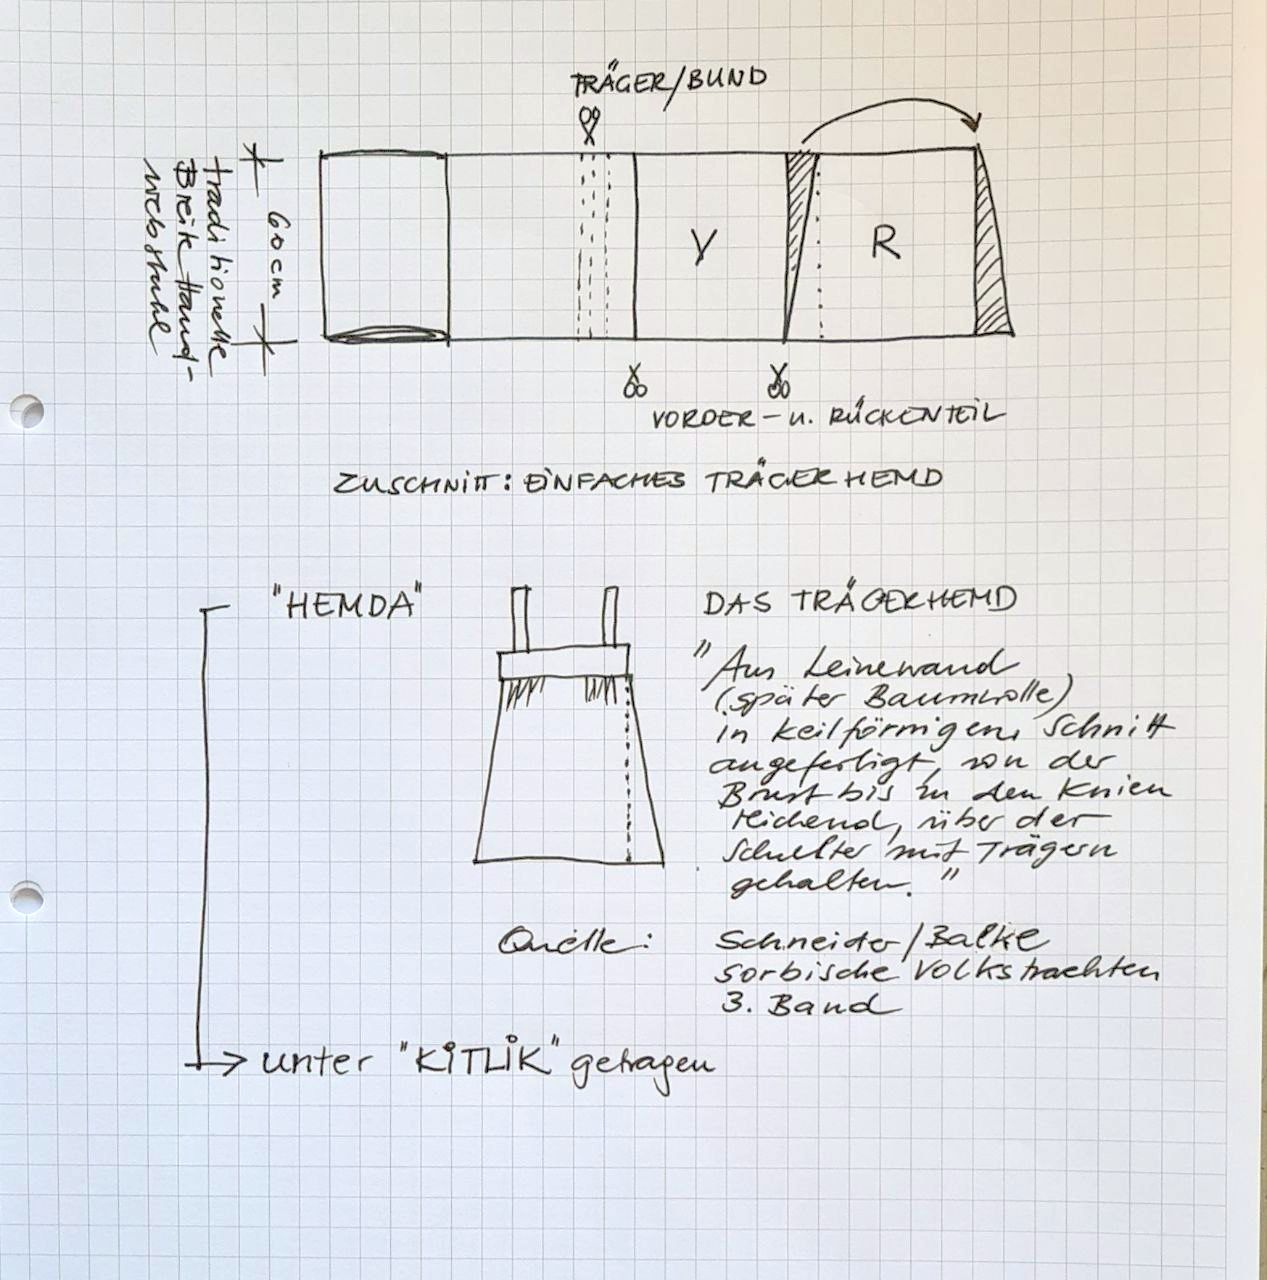 TRÄGER/BUND
60cm
traditionelle
Breite Hand-
webstuhl
V
R
VORDER- u. RÜCKENTEIL
ZUSCHNITT: EINFACHES TRÄGERHEMD
"HEMDA"
DAS TRÄGERHEMD
"Aus Leinewand
(später Baumwolle)
in keilförmigem Schnitt
angefertigt, von der
Brust bis zu den Knien
reichend, über der
Schulter mit Trägern
gehalten."
Quelle: Schneider/Balke
sorbische Volkstrachten
3. Band
unter "KITLIK" getragen